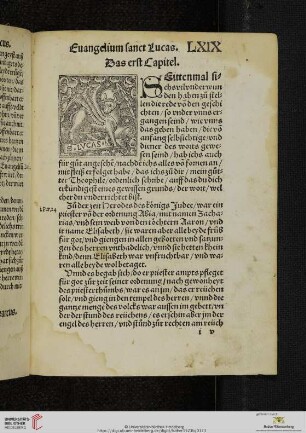 Euangelium sanct Lucas. LXIX
Das erst Capitel.
SEittenmal si-
chs vil vnderwun
den haben zů stel-
len die rede võ den geschi
chten / so vnder vnns er-
gangen seind / wie vnns
das geben haben / die võ
anfang selbs sichtige / vnd
diener des worts gewe-
sen seind / hab ichs auch
S. LVCAS.
für gůt angesehẽ / nach dem ichs alles võ
fleissigst erfolget habe / das ichs zů dir / mein gůt-
ter Theophile / ordenlich schribe / auff das du dich
erkündigest eines gewissen grunds / der wort / wel-
cher du vnderrichtet bist.
Zů der zeit Herodes des künigs Judee / war ein
priester võ der ordnung Abia / mit namen Zacha-
rias / vnd sein weib von den töchtern Aaron / vnd
ir name Elisabeth / sie waren aber alle beyde früm
vor got / vnd giengen in allen gebotten vnd satzun-
gen des herren vntadelich / vnnd sie hetten kein
kind / denn Elisabeth war vnfruchtbar / vnd wa-
ren alle beyde wol betaget.
Vnnd es begab sich / do er priester ampts pfleget
für got zůr zeit seiner ordenung / nach gewonheyt
des priesterthumbs / war es an jm / das er reüchen
solt / vnd gieng in den tempel des herren / vnnd die
gantze menge des volcks war aussen im gebett / vn
der der stund des reüchens / es erschin aber jm der
engel des herren / vnd stůnd zůr rechten am reüch
i v